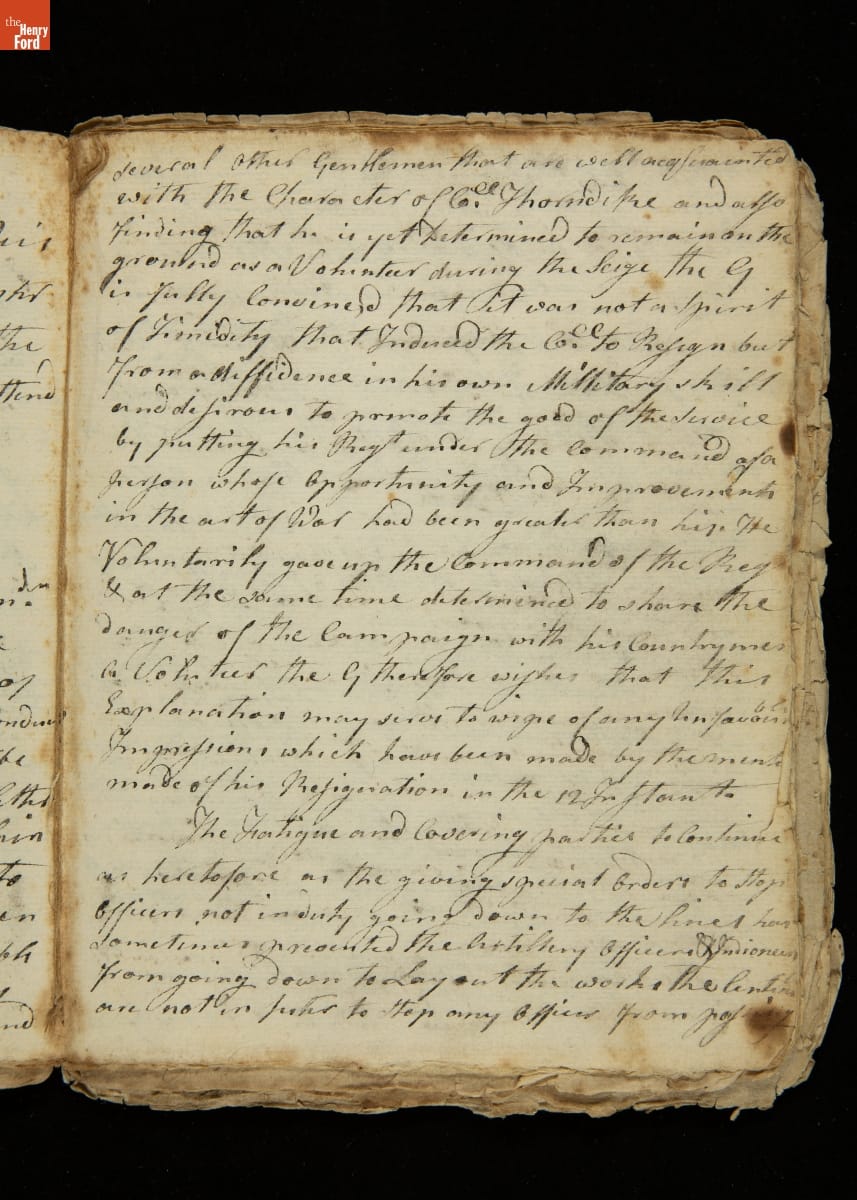 the
Henry
Ford
several other Gentlemen that are well acquainted
with the Character of Coll Thorndike and also
finding that he is yet Determined to remain on the
ground as a Volunteer during the Seige the G
is fully Convined that it was not a spirit
of Timidity that Induced the Coll to Resign but
from a diffidence in his own Millitary skill
and desirous to prmote the good of the Service
by putting his Regt under the Command of a
person whose Opportunity and Improvements
in the art of War had been greater than his He
Voluntarily gave up the Command of the Reg
& at the same time determined to share the
danger of the Campaign with his Countrymen
a Volunteer the G therefore wishes that this
Explanation may serve to wipe of any Unfavour
Impressions which have been made by the ment
made of his Resignation in the 12 Instant
The Fatigue and Covering parties to Continue
as heretofore as the giving special Orders to Stop
Officers not in duty going down to the lines has
Sometimes prevented the Artillery Officers &
from going down to Lay out the works the
are not in futer to Stop any Officer from
his
the
ttend
of
be
to
en
nd